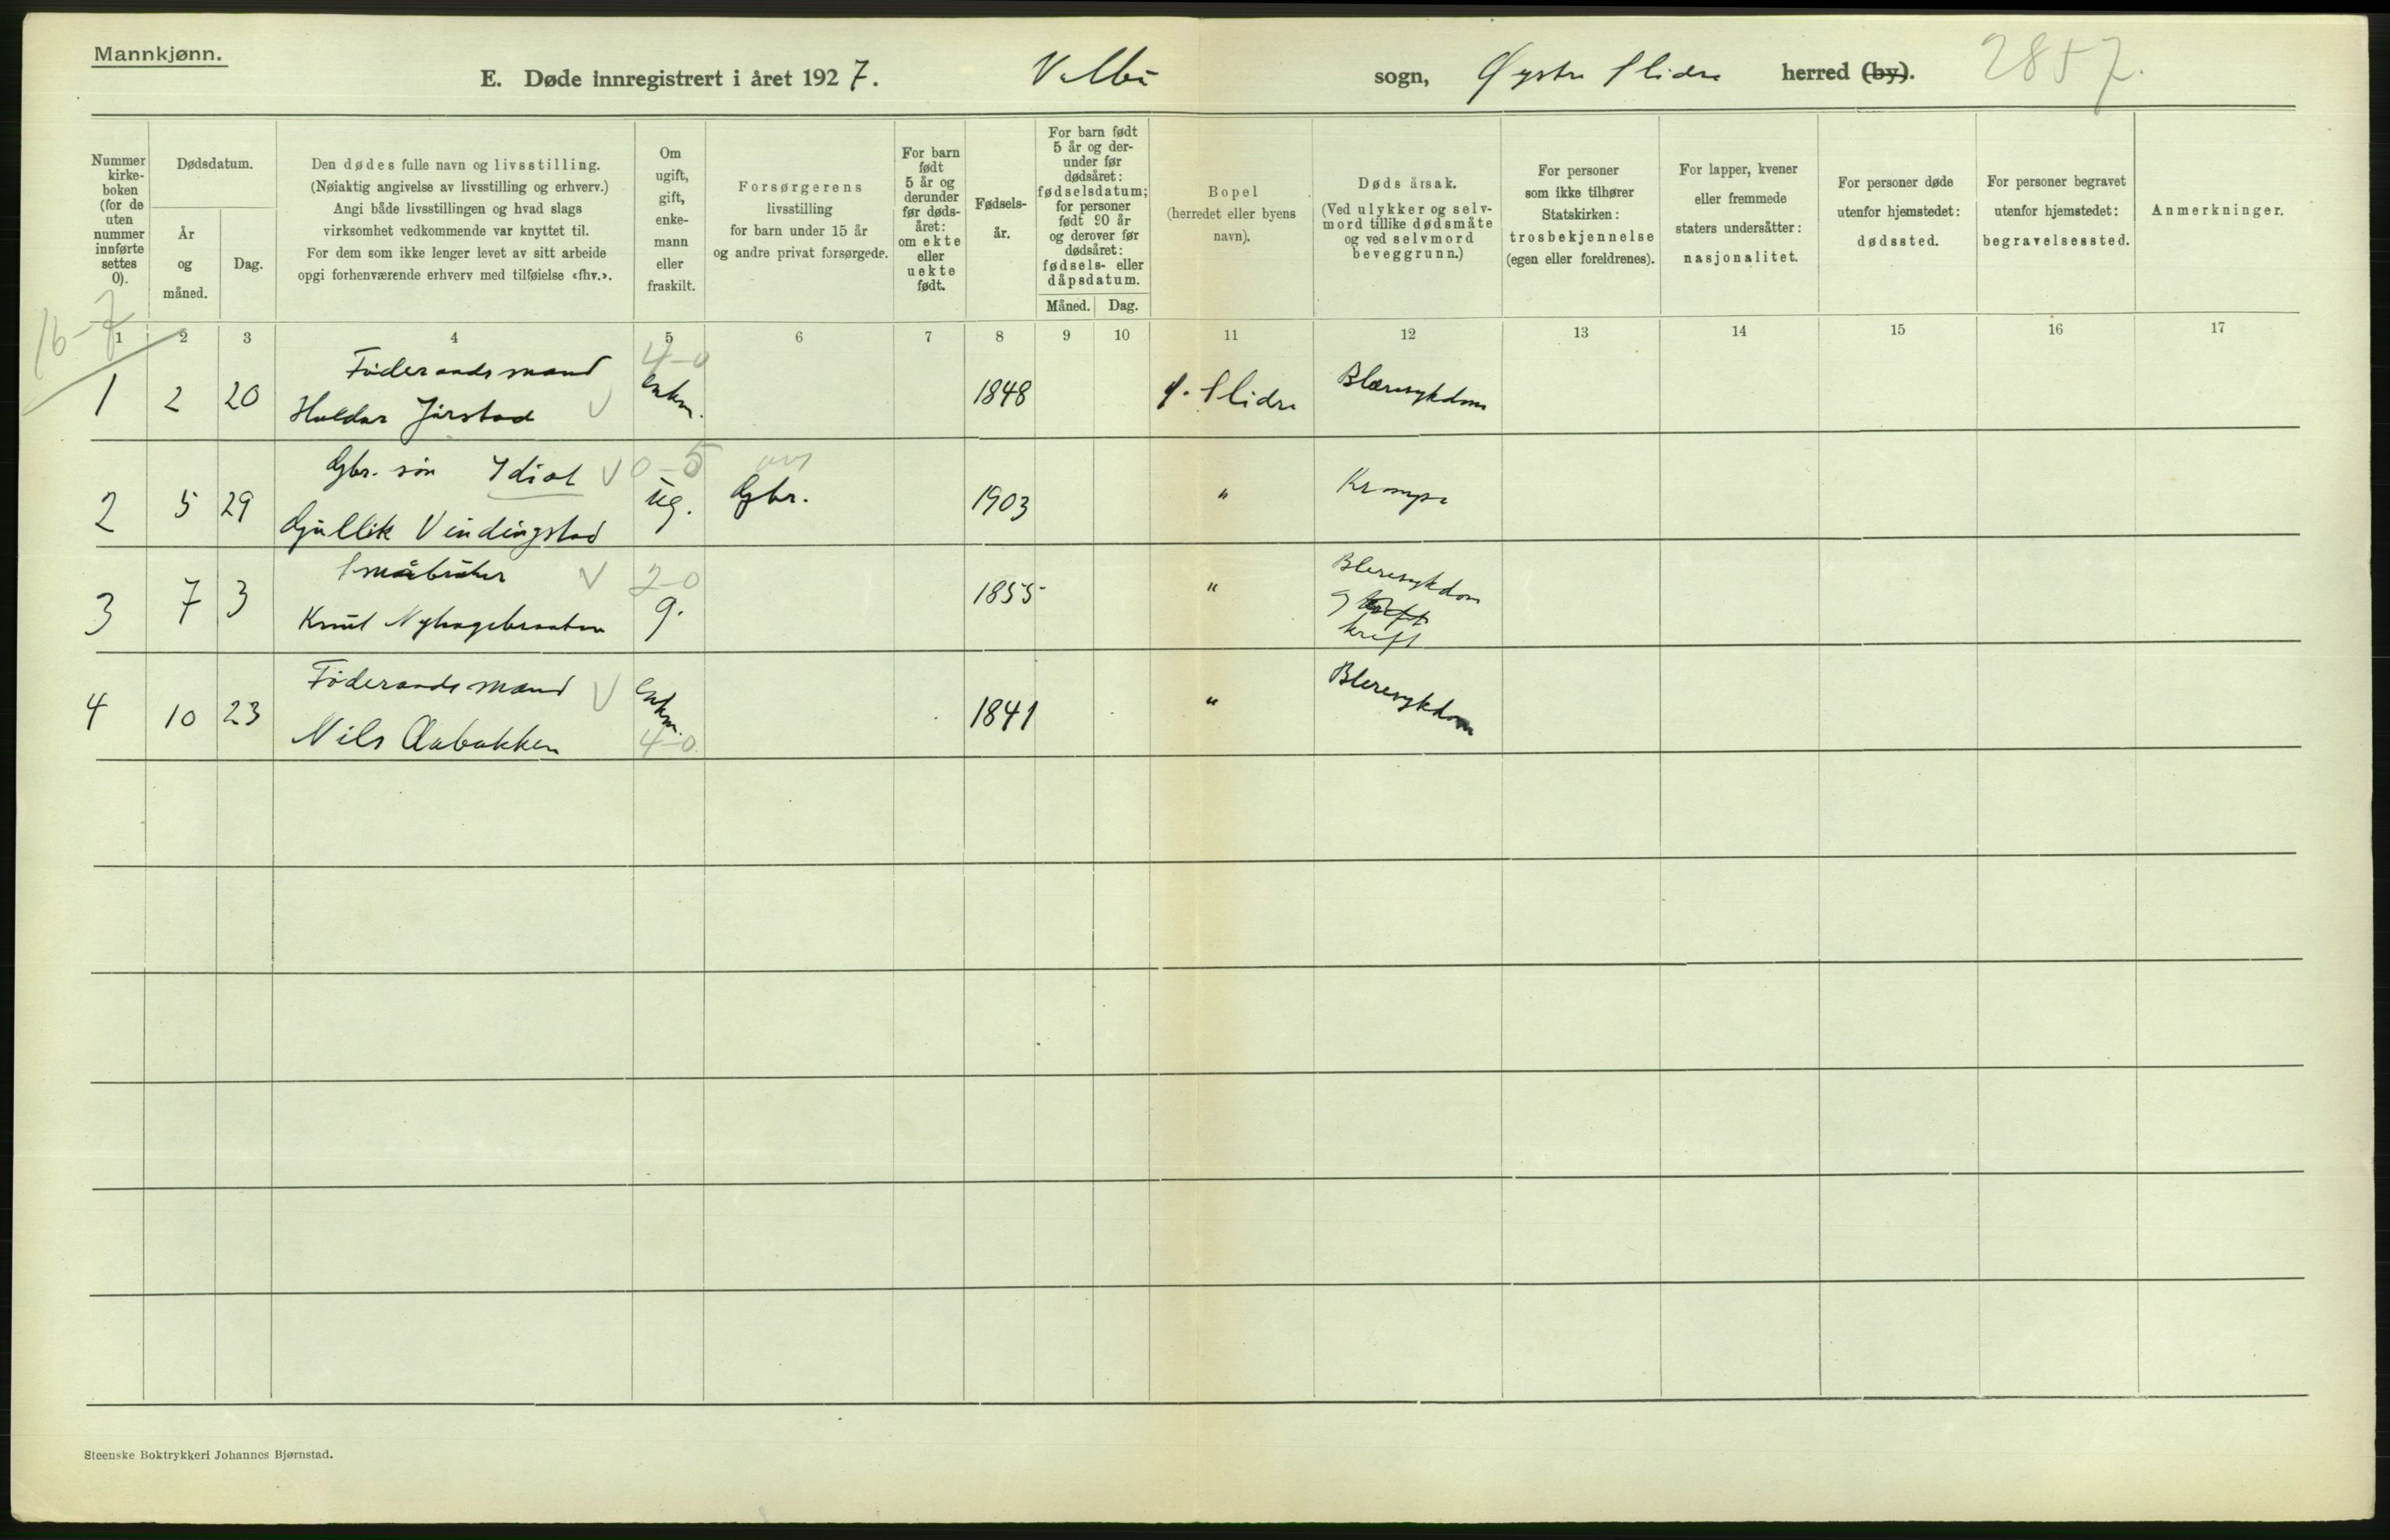 Mannkjønn.
E. Døde innregistrert i året 1927. Volbu sogn, Øystre Slidre herred (by). 2857.
Nummer
kirke-
boken
(for de
uten
nummer
innførte
settes
0).
Dødsdatum.
År
og
måned.
Dag.
Den dødes fulle navn og livsstilling.
(Nøiaktig angivelse av livsstilling og erhverv.)
Angi både livsstillingen og hvad slags
virksomhet vedkommende var knyttet til.
For dem som ikke lenger levet av sitt arbeide
opgi forhenværende erhverv med tilføielse «fhv.».
Om
ugift,
gift,
enke-
mann
eller
fraskilt.
Forsørgerens
livsstilling
for barn under 15 år
og andre privat forsørgede.
For barn
født
5 år og
derunder
før døds-
året:
om ekte
eller
uekte
født.
Fødsels-
år.
For barn født
5 år og der-
under før
dødsåret:
fødselsdatum;
for personer
født 90 år
og derover før
dødsåret:
fødsels- eller
dåpsdatum.
Måned. Dag.
Bopel
(herredet eller byens
navn).
Dødsårsak.
(Ved ulykker og selv-
mord tillike dødsmåte
og ved selvmord
beveggrunn.)
For personer
som ikke tilhører
Statskirken:
trosbekjennelse
(egen eller foreldrenes).
For lapper, kvener
eller fremmede
staters undersåtter:
nasjonalitet.
For personer døde
utenfor hjemstedet:
dødssted.
For personer begravet
utenfor hjemstedet:
begravelsessted.
Anmerkninger.
16-7
1 2 3 4 5 6 7 8 9 10 11 12 13 14 15 16 17
Föderaadsmand 4-0
1 2 20 Haldor Jarstad Enkm. 1848 Ø. Slidre Blæresykdom
Gbr. søn Idiot 0-5
2 5 29 Gullik Vindingstad ug. Gbr. 1903 " Krampe
Småbruker 2-0
3 7 3 Knut Nyhagebraaten g. 1855 " Bleresykdom
og kreft
kreft
Föderaadsmand
4 10 23 Nils Aabakken Enkm. 1841 " Bleresykdom
4-0.
Steenske Boktrykkeri Johannes Bjørnstad.